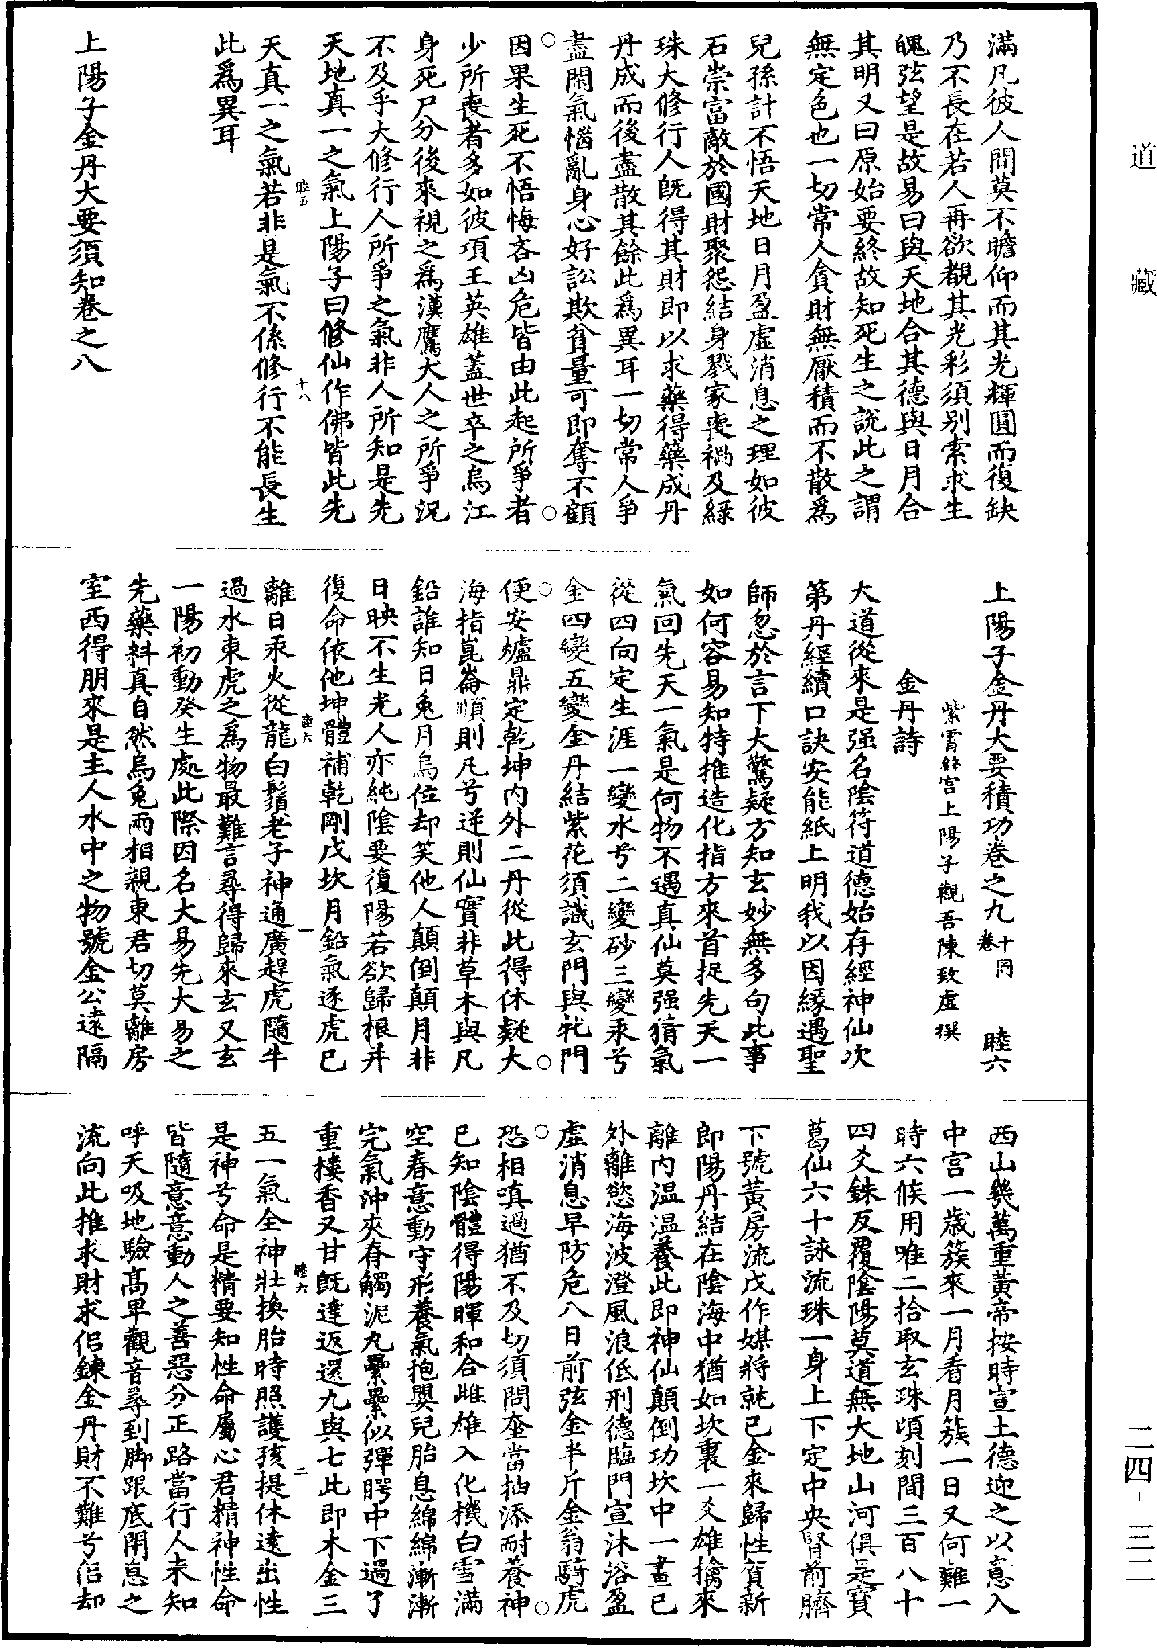 道藏
滿凡彼人間莫不瞻仰而其光輝圓而復缺
乃不長在若人再欲覩其光彩須別索求生
魄弦望是故易曰與天地合其德與日月合
其明又曰原始要終故知死生之說此之謂
無定色也一切常人貪財無厭積而不散為
兒孫計不悟天地日月盈虛消息之理如彼
石崇富敵於國財聚怨結身戮家喪禍及緑
珠大修行人既得其財即以求藥得藥成丹
丹成而後盡散其餘此為異耳一切常人爭
盡閑氣惱亂身心好訟欺貧量可即奪不顧
因果生死不悟悔吝凶危皆由此起所爭者
少所喪者多如彼項王英雄蓋世卒之烏江
身死尸分後來視之為漢鷹犬人之所爭況
不及乎大修行人所爭之氣非人所知是先
天地真一之氣上陽子曰修仙作佛皆此先
天真一之氣若非是氣不係修行不能長生
睦五
十八
此為異耳
上陽子金丹大要須知卷之八
上陽子金丹大要積功卷之九 十卷同 睦六
紫霄絳宮上陽子觀吾陳致虛撰
金丹詩
大道從來是强名陰符道德始存經神仙次
第丹經續口訣安能紙上明我以因緣遇聖
師忽於言下大驚疑方知玄妙無多句此事
如何容易知特推造化指方來首捉先天一
氣回先天一氣是何物不遇真仙莫强猜氣
從四向定生涯一變水兮二變砂三變汞兮
金四變五變金丹結紫花須識玄門與牝門
便安爐鼎定乾坤內外二丹從此得休疑大
海指崑崙順則凡兮逆則仙實非草木與凡
鉛誰知日兔月烏位却笑他人顛倒顛月非
日映不生光人亦純陰要復陽若欲歸根并
復命依他坤體補乾剛戊坎月鉛氣逐虎巳
離日汞火從龍白鬚老子神通廣趕虎隨牛
睦六
一
過水東虎之為物最難言尋得歸來玄又玄
一陽初動癸生處此際因名大易先大易之
先藥料真自然烏兔兩相親東君切莫離房
室西得朋來是主人水中之物號金公遠隔
西山幾萬重黃帝按時宣土德迎之以意入
中宮一歲簇來一月看月簇一日又何難一
時六候用唯二拾取玄珠頃刻間三百八十
四爻銖反覆陰陽莫道無大地山河俱是寶
葛仙六十詠流珠一身上下定中央腎前臍
下號黃房流戊作媒將就己金來歸性賀新
郎陽丹結在陰海中猶如坎裏一爻雄擒來
離內温温養此即神仙顛倒功坎中一畫已
外離慾海波澄風浪低刑德臨門宣沐浴盈
虛消息早防危八日前弦金半斤金翁騎虎
恐相嗔過猶不及切須問奩當抽添耐養神
已知陰體得陽暉和合雌雄入化機白雪滿
空春意動守形養氣抱嬰兒胎息綿綿漸漸
完氣沖夾脊觸泥丸纍纍似彈腭中下過了
重樓香又甘既達返還九與七此即木金三
五一氣全神壯換胎時照護孩提休遠出性
睦六
二
是神兮命是精要知性命屬心君精神性命
皆隨意意動人之善惡分正路當行人未知
呼天吸地驗髙卑觀音尋到脚跟底閑息之
流向此推求財求侣鍊金丹財不難兮侣却
二四-三二